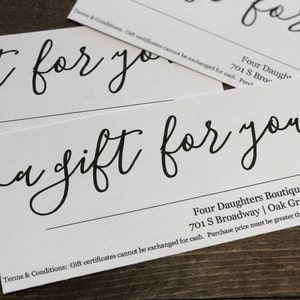 t for yo
Terms & Conditions: Gift certificates cannot be exchanged for cash. Purchase
Four Daught
701 S Broadw
a gift for you
Four Daughters Boutique
701 S Broadway | Oak Gr
Terms & Conditions: Gift certificates cannot be exchanged for cash. Purchase price must be greater th